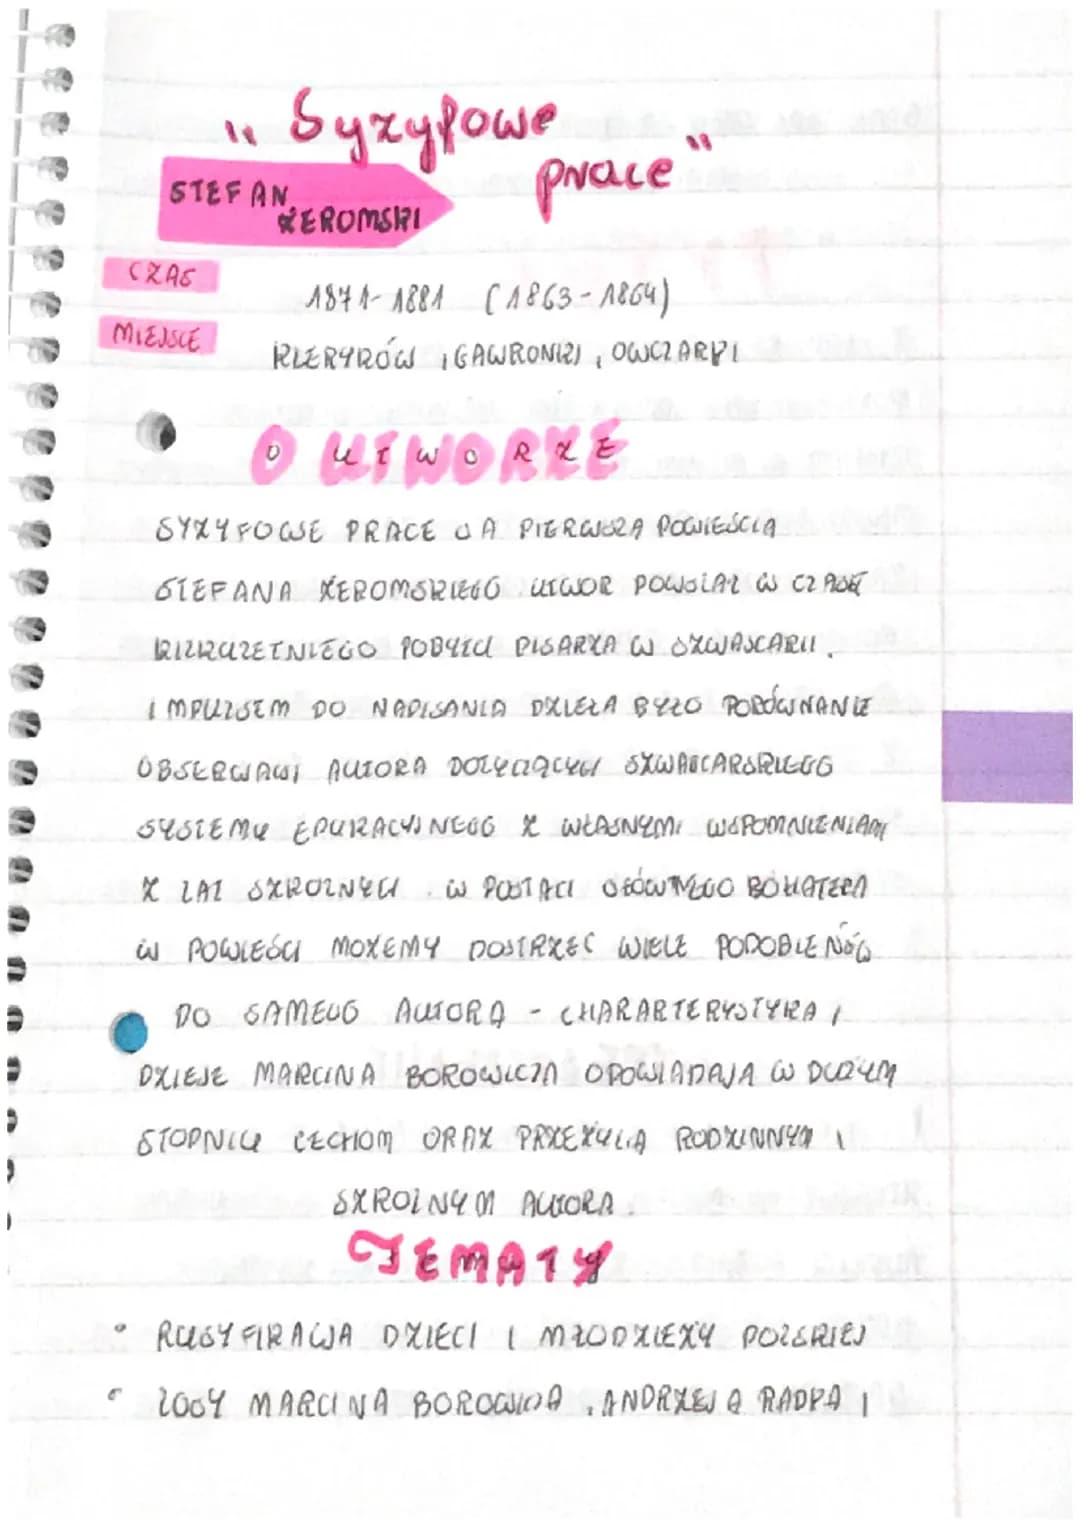 "Syzyfowe
prace"
STEFAN
ŻEROMSKI
CZAS
1871-1881 (1863-1864)
MIEJSCE
KLERYKÓW, GAWRONKI, OWCZARKI
O UTWORZE
SYZYFOWE PRACE SĄ PIERWSZĄ POWIEŚCIĄ
STEFANA ŻEROMSKIEGO. UTWÓR POWSTAŁ W CZASIE
KILKULETNIEGO POBYTU PISARZA W SZWAJCARII.
IMPULSEM DO NAPISANIA DZIEŁA BYŁO PORÓWNANIE
OBSERWACJI AUTORA DOTYCZĄCYCH SZWAJCARSKIEGO
SYSTEMU EDUKACYJNEGO Z WŁASNYMI WSPOMNIENIAMI
Z LAT SZKOLNYCH. W POSTACI GŁÓWNEGO BOHATERA
W POWIEŚCI MOŻEMY DOSTRZEC WIELE PODOBIEŃSTW
DO SAMEGO AUTORA - CHARAKTERYSTYKA I
DZIEJE MARCINA BOROWICZA ODPOWIADAJĄ W DUŻYM
STOPNIU CECHOM ORAZ PRZEŻYCIĄ RODZINNYM I
SZKOLNYM AUTORA.
TEMATY
• RUSYFIKACJA DZIECI I MŁODZIEŻY POLSKIEJ
• LOSY MARCINA BOROWICZA, ANDRZEJA RADKA I